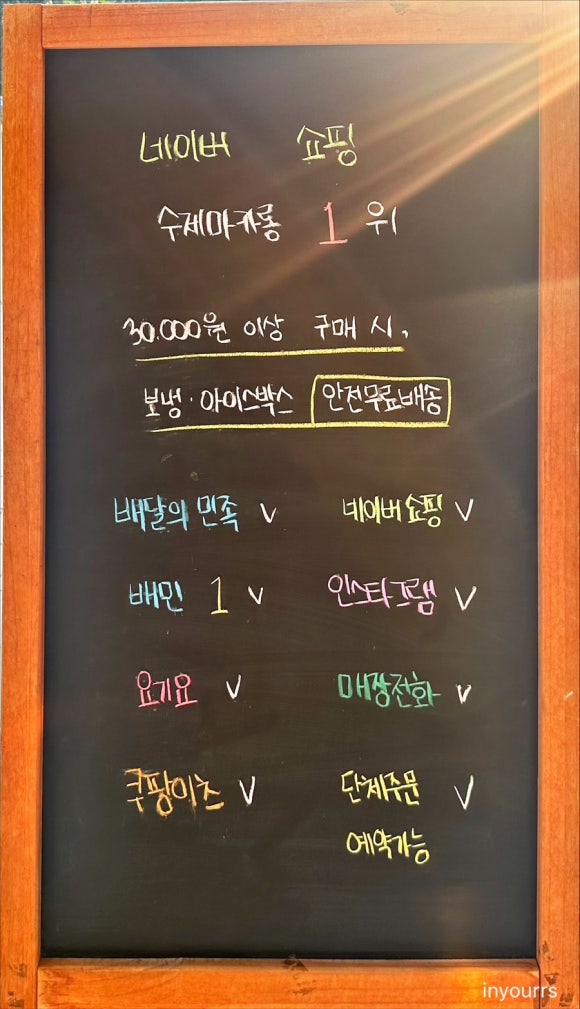 네이버 쇼핑
수제마카롱 1위
30.000원 이상 구매 시,
보냉·아이스박스 안전무료배송
배달의 민족 V 네이버 쇼핑 V
배민 1 V 인스타그램 V
요기요 V 매장전화 V
쿠팡이츠 V 단체주문 V
예약가능
inyourrs